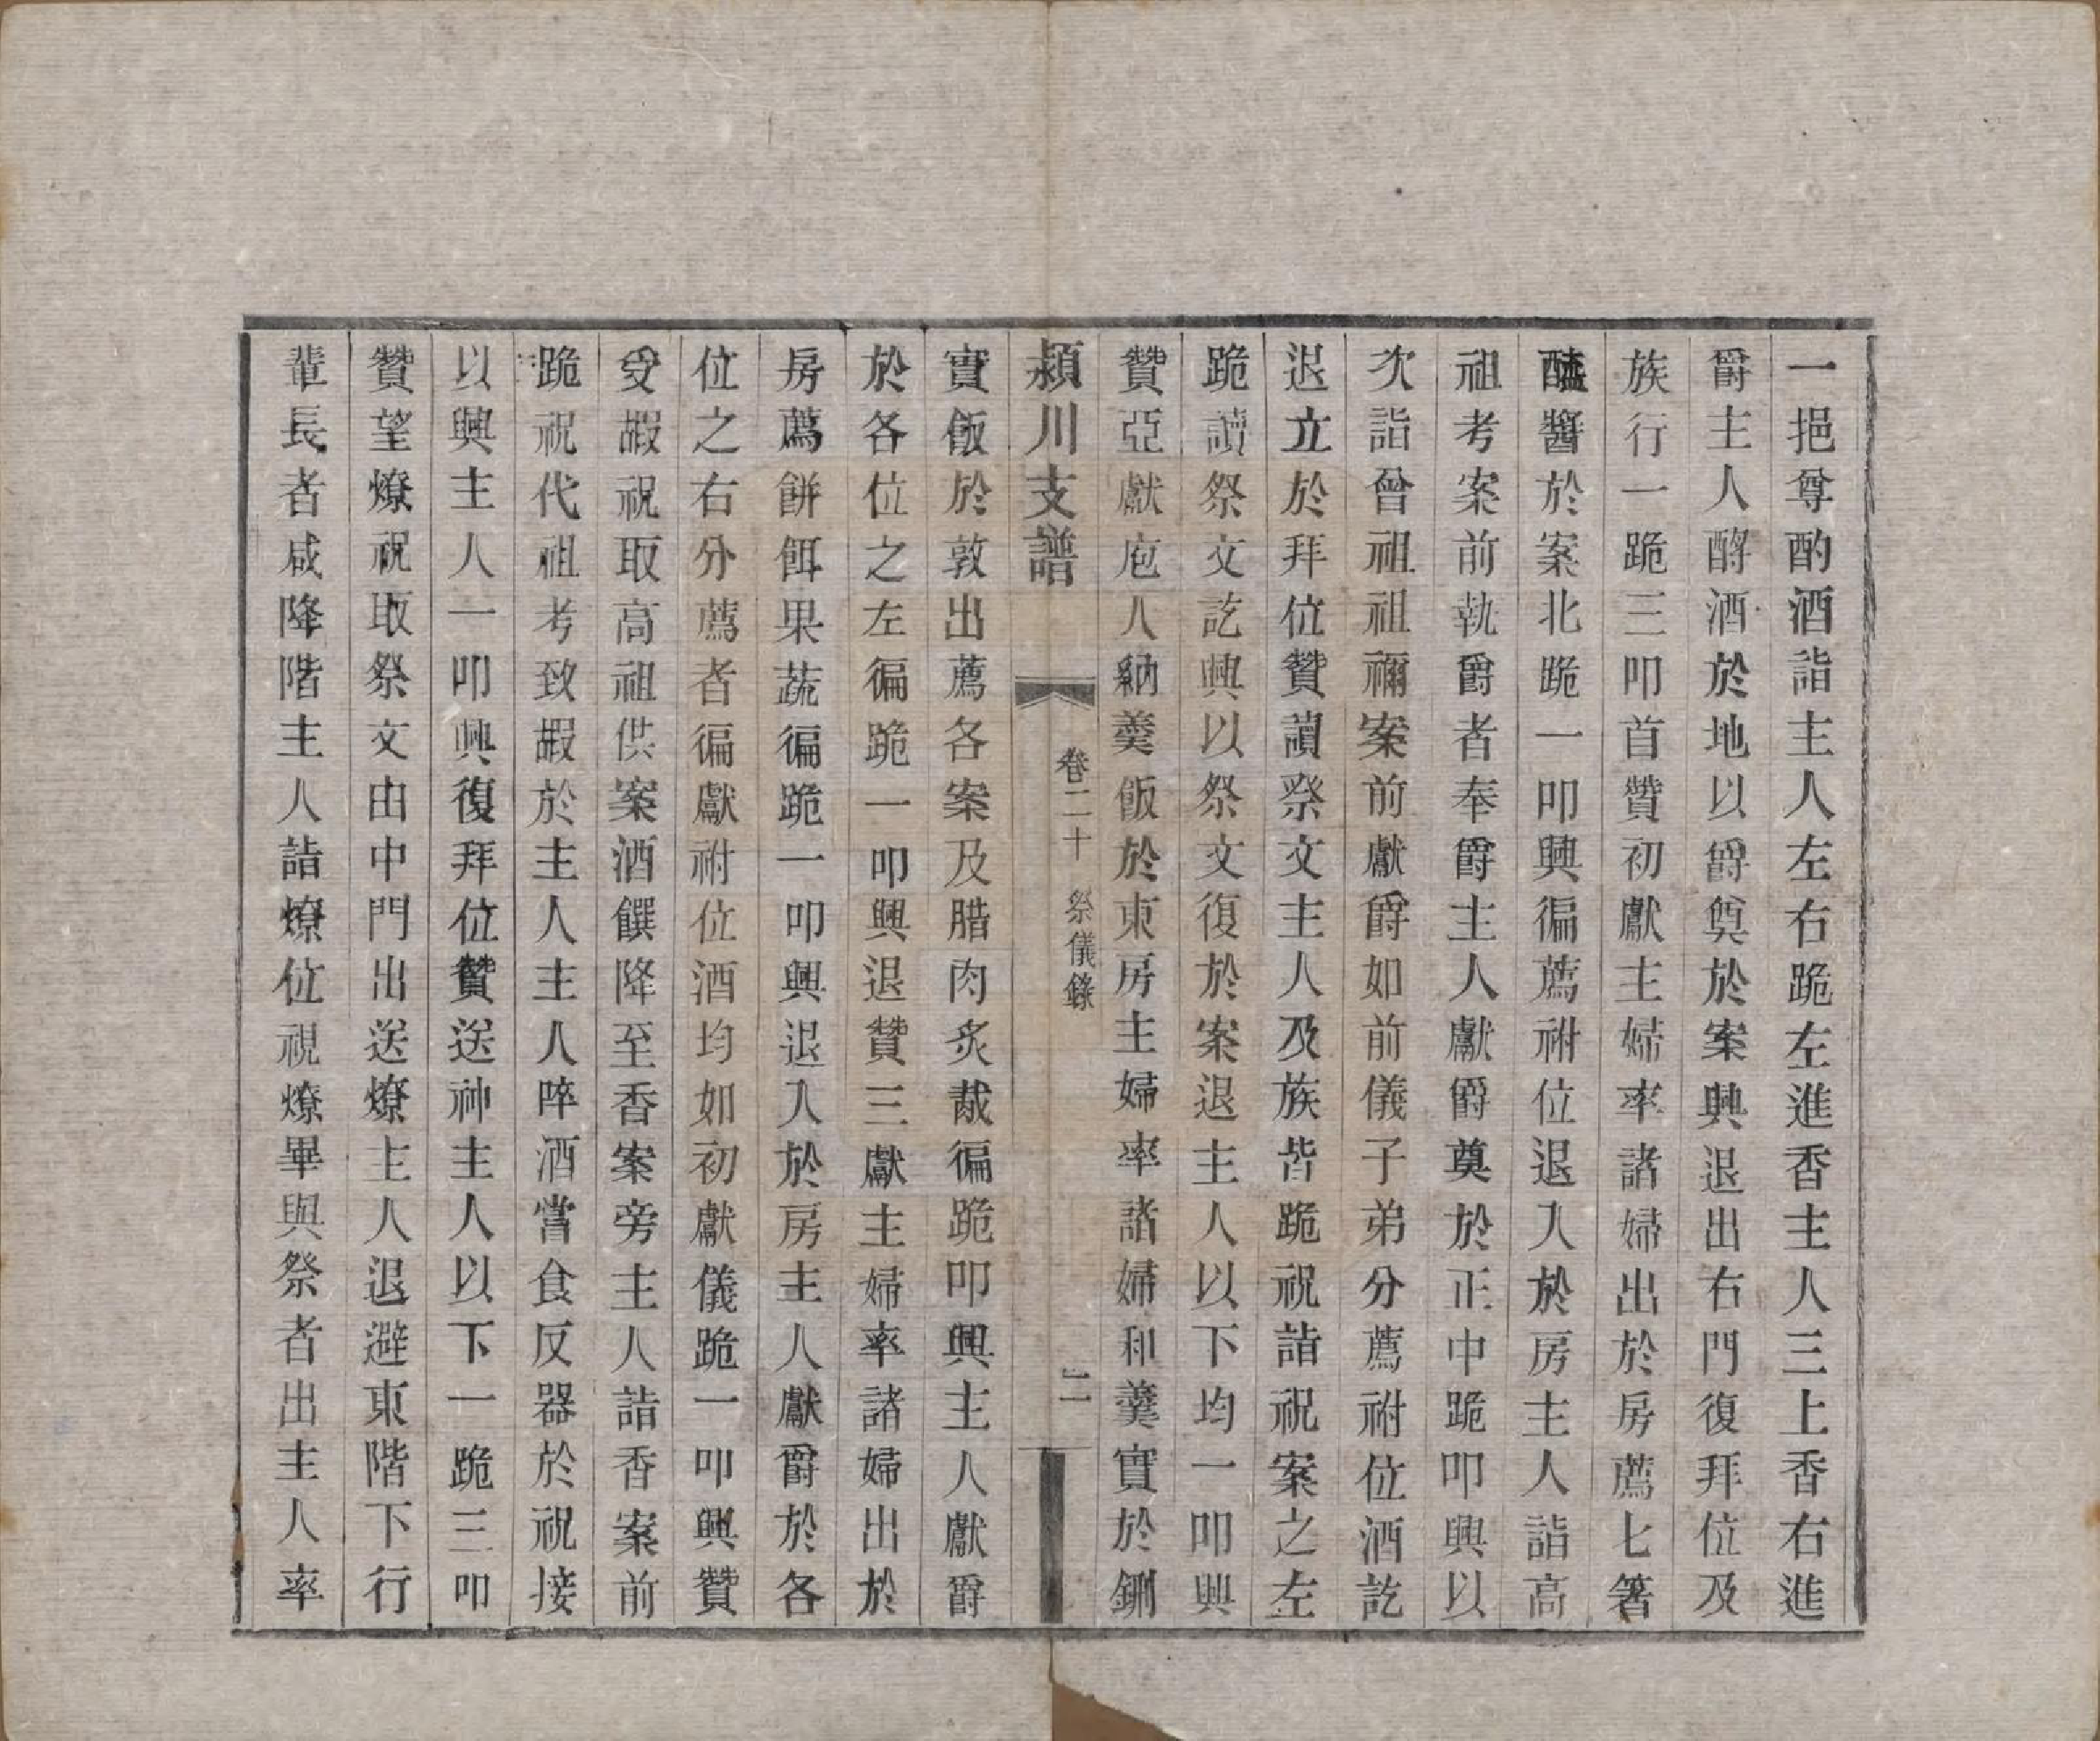 一挹尊酌酒詣主人左右跪左進香主人三上香右進
爵主人酹酒於地以爵奠於案興退出右門復拜位及
族行一跪三叩首贊初獻主婦率諸婦出於房薦匕箸
醯醬於案北跪一叩興徧薦祔位退入於房主人詣高
祖考案前執爵者奉爵主人獻爵奠於正中跪叩興以
次詣曾祖祖禰案前獻爵如前儀子弟分薦祔位酒訖
退立於拜位贊讀祭文主人及族皆跪祝詣祝案之左
跪讀祭文訖興以祭文復於案退主人以下均一叩興
贊亞獻庖人納羹飯於東房主婦率諸婦和羹實於鉶
潁川支譜 卷二十 祭儀錄 二
實飯於敦出薦各案及腊肉炙胾徧跪叩興主人獻爵
於各位之左徧跪一叩興退贊三獻主婦率諸婦出於
房薦餅餌果蔬徧跪一叩興退入於房主人獻爵於各
位之右分薦者徧獻祔位酒均如初獻儀跪一叩興贊
受嘏祝取高祖供案酒饌降至香案旁主人詣香案前
跪祝代祖考致嘏於主人主人啐酒嘗食反器於祝接
以興主人一叩興復拜位贊送神主人以下一跪三叩
贊望燎祝取祭文由中門出送燎主人退避東階下行
輩長者咸降階主人詣燎位視燎畢與祭者出主人率